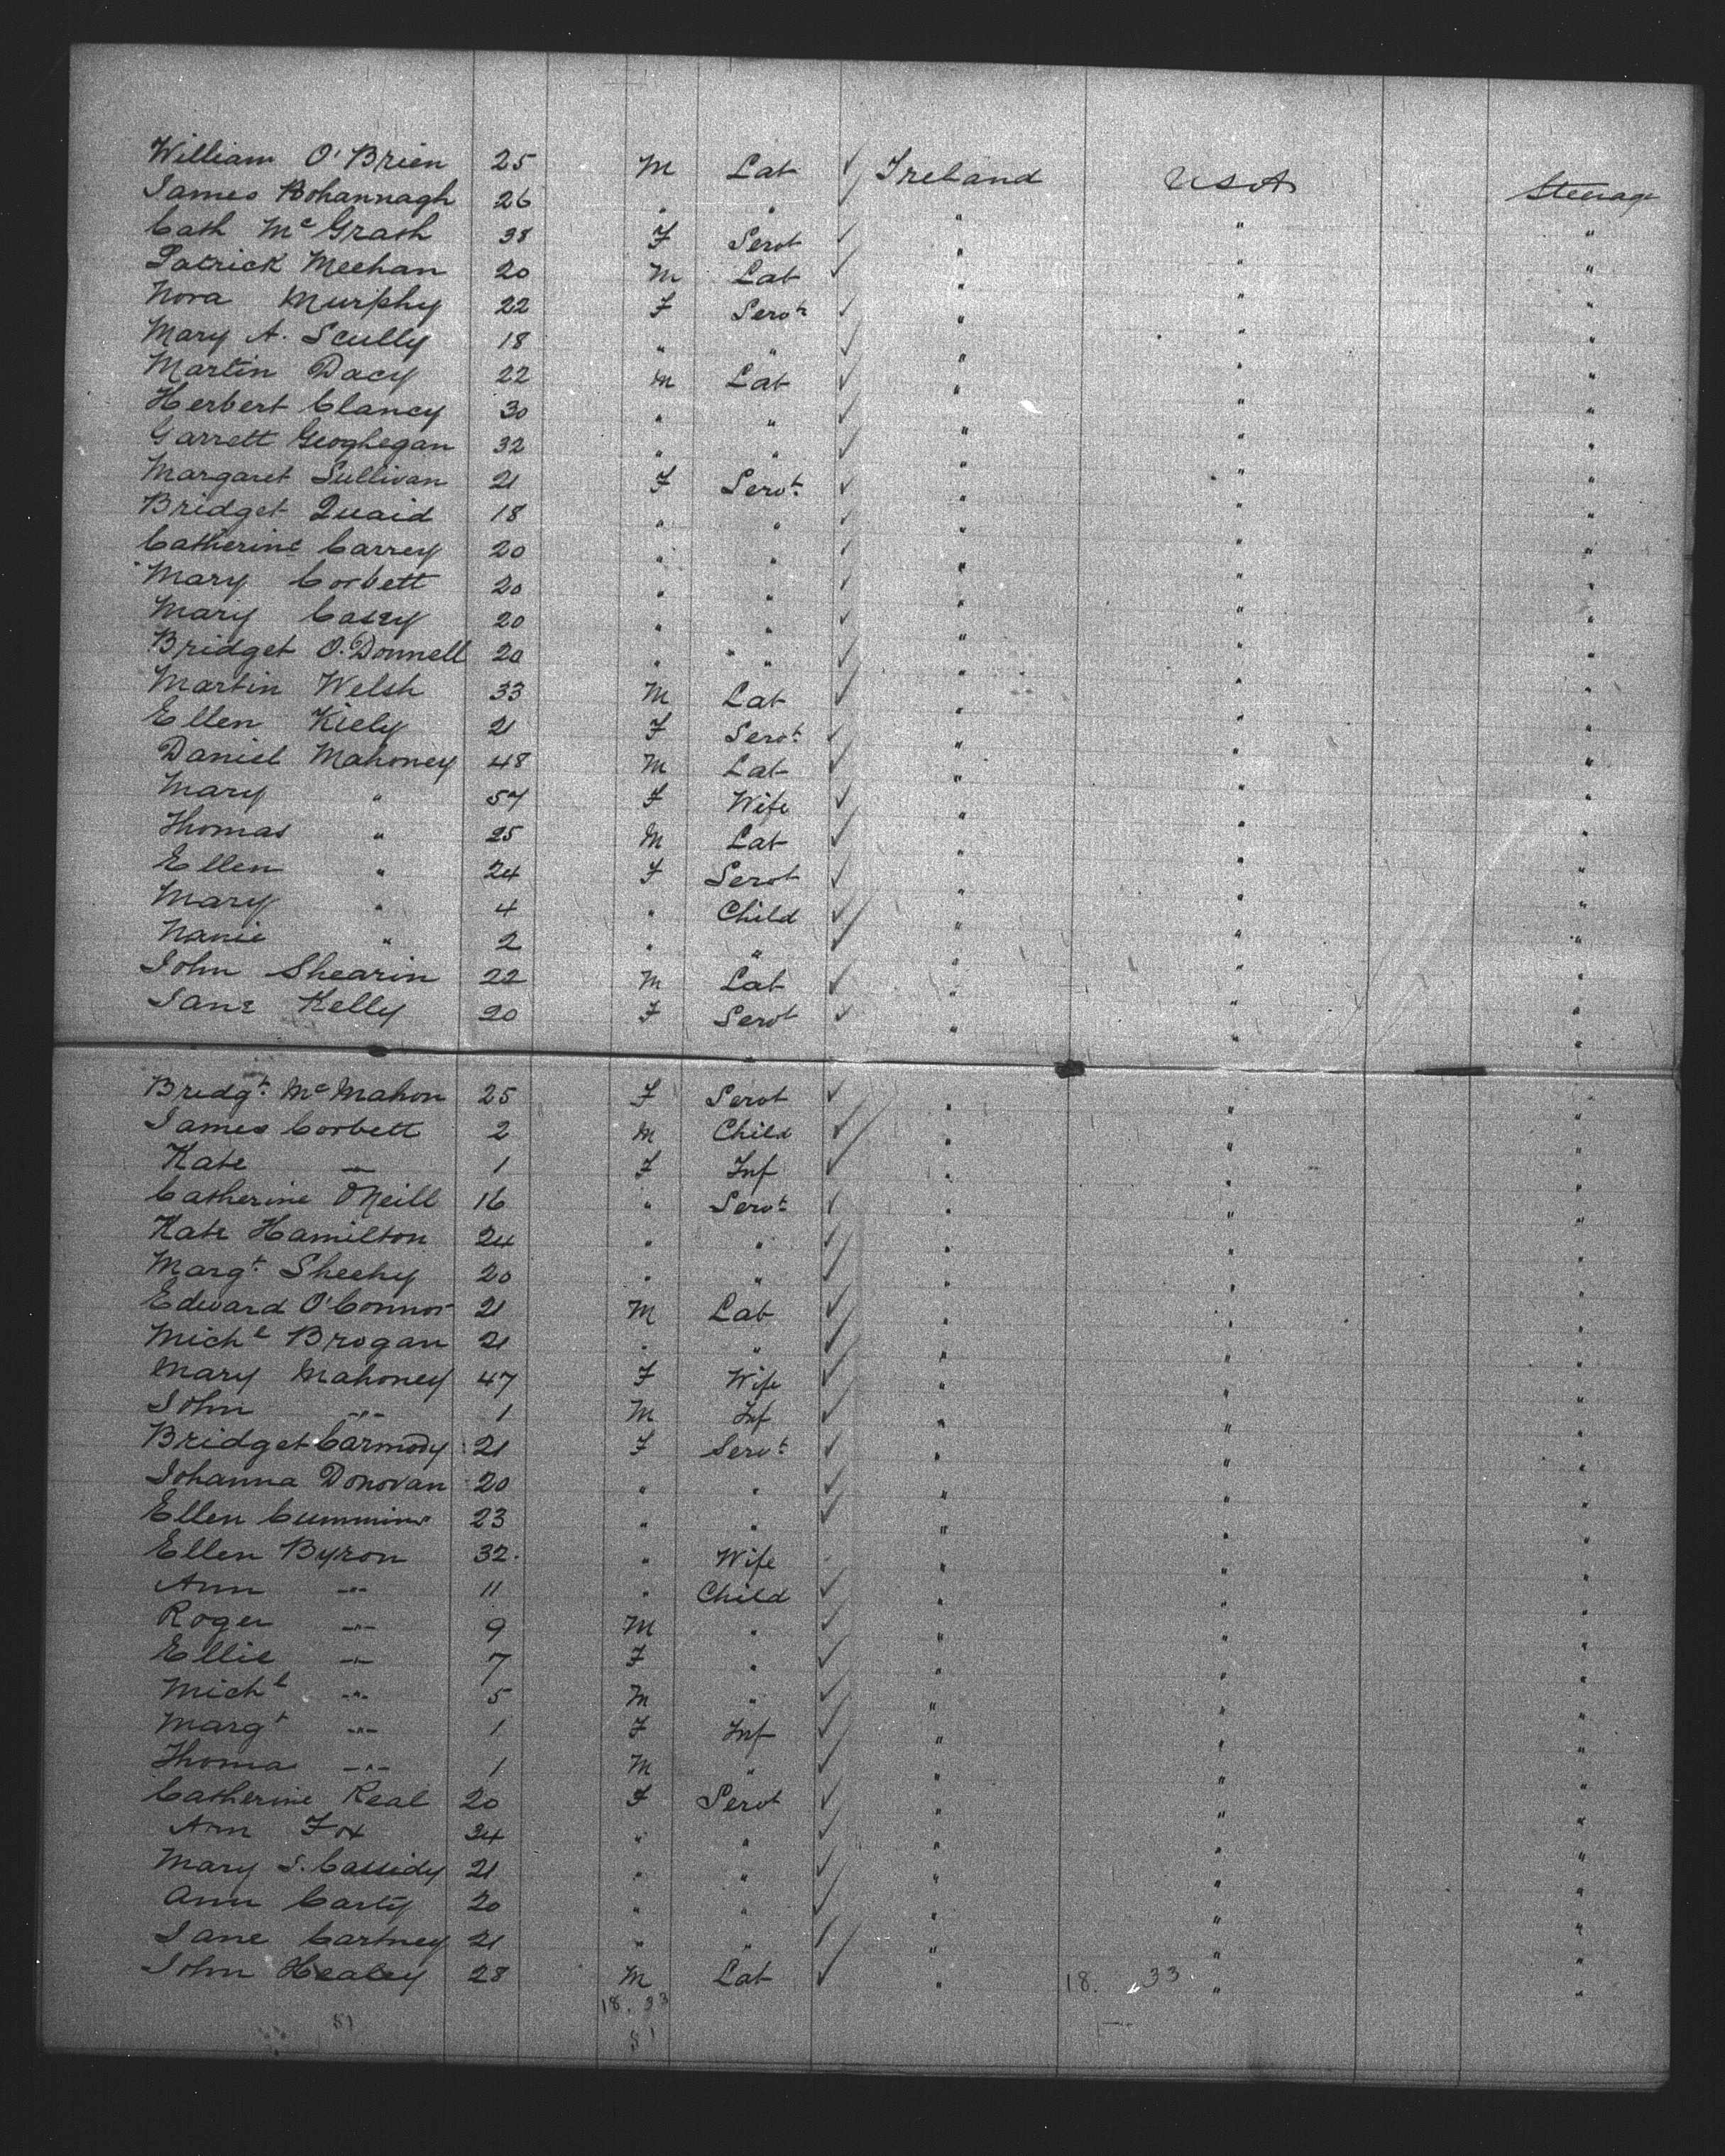 William O'Brien 25 M Lab ✓ Ireland USA Steerage
James Bohannagh 26 " " ✓ " " "
Cath McGrath 38 F Servt ✓ " " "
Patrick Meehan 20 M Lab ✓ " " "
Nora Murphy 22 F Servt ✓ " " "
Mary A. Scully 18 " " ✓ " " "
Martin Dacy 22 M Lab ✓ " " "
Herbert Clancy 30 " " ✓ " " "
Garrett Geoghegan 32 " " ✓ " " "
Margaret Sullivan 21 F Servt ✓ " " "
Bridget Quaid 18 " " ✓ " " "
Catherine Carrey 20 " " ✓ " " "
Mary Corbett 20 " " ✓ " " "
Mary Casey 20 " " ✓ " " "
Bridget O.Donnell 20 " " ✓ " " "
Martin Welsh 33 M Lab ✓ " " "
Ellen Kiely 21 F Servt ✓ " " "
Daniel Mahoney 48 M Lab ✓ " " "
Mary " 57 F Wife ✓ " " "
Thomas " 25 M Lab ✓ " " "
Ellen " 24 F Servt ✓ " " "
Mary " 4 " Child ✓ " " "
Nanie " 2 " " ✓ " " "
John Shearin 22 M Lab ✓ " " "
Jane Kelly 20 F Servt ✓ " " "
Bridgt. McMahon 25 F Servt ✓ " " "
James Corbett 2 M Child ✓ " " "
Kate " 1 F Inf ✓ " " "
Catherine O'Neill 16 " Servt ✓ " " "
Kate Hamilton 24 " " ✓ " " "
Margt. Sheehy 20 " " ✓ " " "
Edward O'Connor 21 M Lab ✓ " " "
Michl Brogan 21 " " ✓ " " "
Mary Mahoney 47 F Wife ✓ " " "
John " 1 M Inf ✓ " " "
Bridget Carmody 21 F Servt ✓ " " "
Johanna Donovan 20 " " ✓ " " "
Ellen Cummins 23 " " ✓ " " "
Ellen Byron 32. " Wife " " "
Ann " 11 " Child ✓ " " "
Roger " 9 M " ✓ " " "
Ellie " 7 F " ✓ " " "
Michl " 5 M " ✓ " " "
Margt " 1 F Inf ✓ " " "
Thomas " 1 M " ✓ " " "
Catherine Real 20 F Servt ✓ " " "
Ann Fox 34 " " ✓ " " "
Mary S. Cassidy 21 " " ✓ " " "
Ann Carty 20 " " ✓ " " "
Jane Cartney 21 " " ✓ " " "
John Healey 28 M Lab ✓ " 18. 33 " "
18. 33
51 51